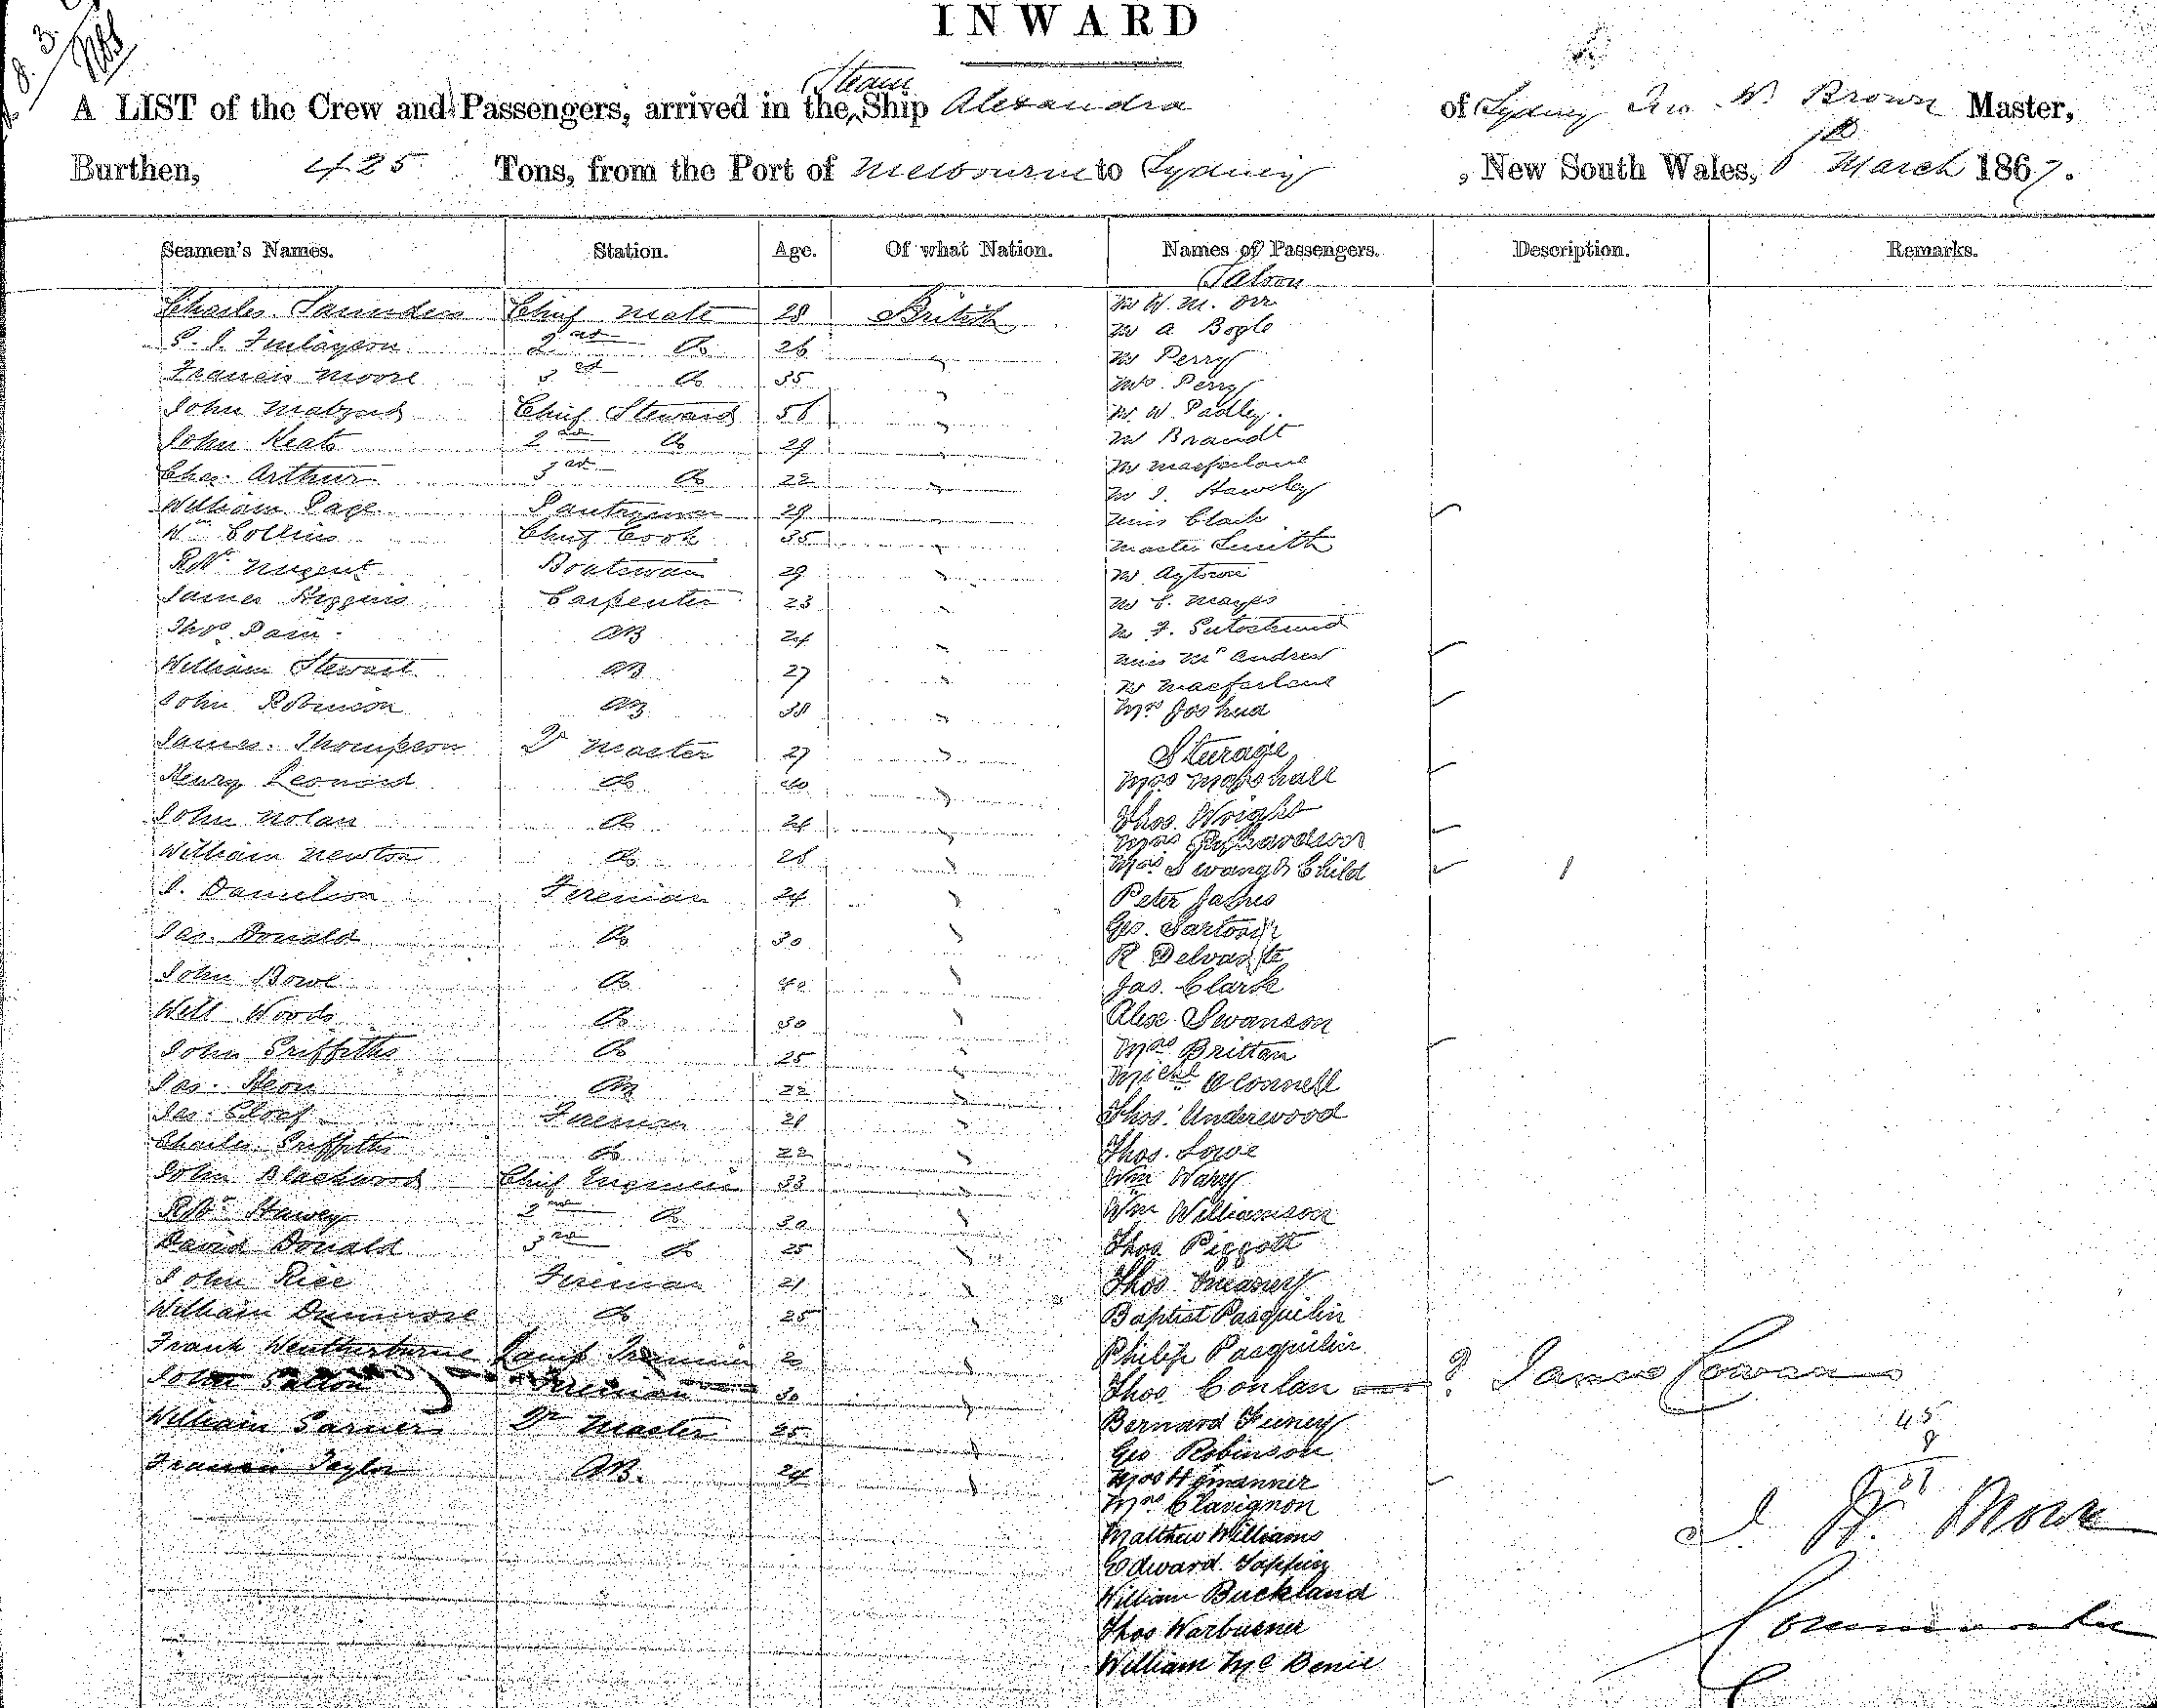 INWARD
Steam
A LIST of the Crew and Passengers, arrived in the Ship Alexandra of Sydney Jno. W. Brown Master,
Burthen, 425 Tons, from the Port of Melbourne to Sydney, New South Wales, March 1867.
Seamen's Names. Station. Age. Of what Nation. Names of Passengers. Description. Remarks.
Saloon
Charles Saunders Chief Mate 28 British Mr W. M. Orr
Mr A Bogle
P. J. Finlayson 2nd Do 26 " Mr Perry
Francis Moore 3rd Do 35 " Mrs Perry
John Chief Steward 56 " Mr W. Padley
John Keats 2nd Do 29 " Mr Brandt
Mr Macfarlane
Chas. Arthur 3rd Do 22 " Mr J. Hawsley
William Page Pantryman 29 " Miss Clark
Wm Collins Chief Cook 35 " Master Smith
Robt Nugent Boatswain 29 " Mr Aytown
James Higgins Carpenter 23 " Mr C. Mayes
Thos. Pain AB 24 " Mr F.
Miss McAndrew
William Stewart AB 27 " Mr Macfarlane
John Robinson AB 38 " Mrs Joshua
James Thompson Qr Master 27 " Sturage
Henry Leonard Do 40 " Mrs Marshall
John Nolan Do 24 " Thos. Wright
Mrs Richardson
William Newton Do 28 " Mrs Swang & Child
J. Danielson Fireman 24 " Peter James
Jas. Donald Do 30 " Geo. Sartori
R Delvas
John Bowl Do 40 " Jas. Clark
Will Woods Do 30 " Alex Swanson
John Griffiths Do 25 " Mrs Brittan
Jas. Heon AB 22 " Michl OConnell
Jas. Fireman 21 " Thos. Underwood
Charles Griffiths Do 22 " Thos. Lowe
John Blackwood Chief Engineer 33 " Wm Wary
Robt Hawey 2nd Do 30 " Wm Williamson
David Donald 3rd Do 25 " Thos Piggott
John Rice Fireman 21 " Thos Meaney
William Dunmore Do 25 " Baptist Pasquilin
Frank Weatherburne Lamp Trimmer 20 " Philip Pasquilin
John Fireman 30 " Thos Conlan ? James Cowan
William Garner Qr Master 25 " Bernard Feeney
Geo Robinson
Francis Taylor AB. 24 " Mrs Hymanner
Mrs Clavignon
Matthew Williams
Edward Topping
William Buckland
Thos Warburner
William McBenie
45
Commander